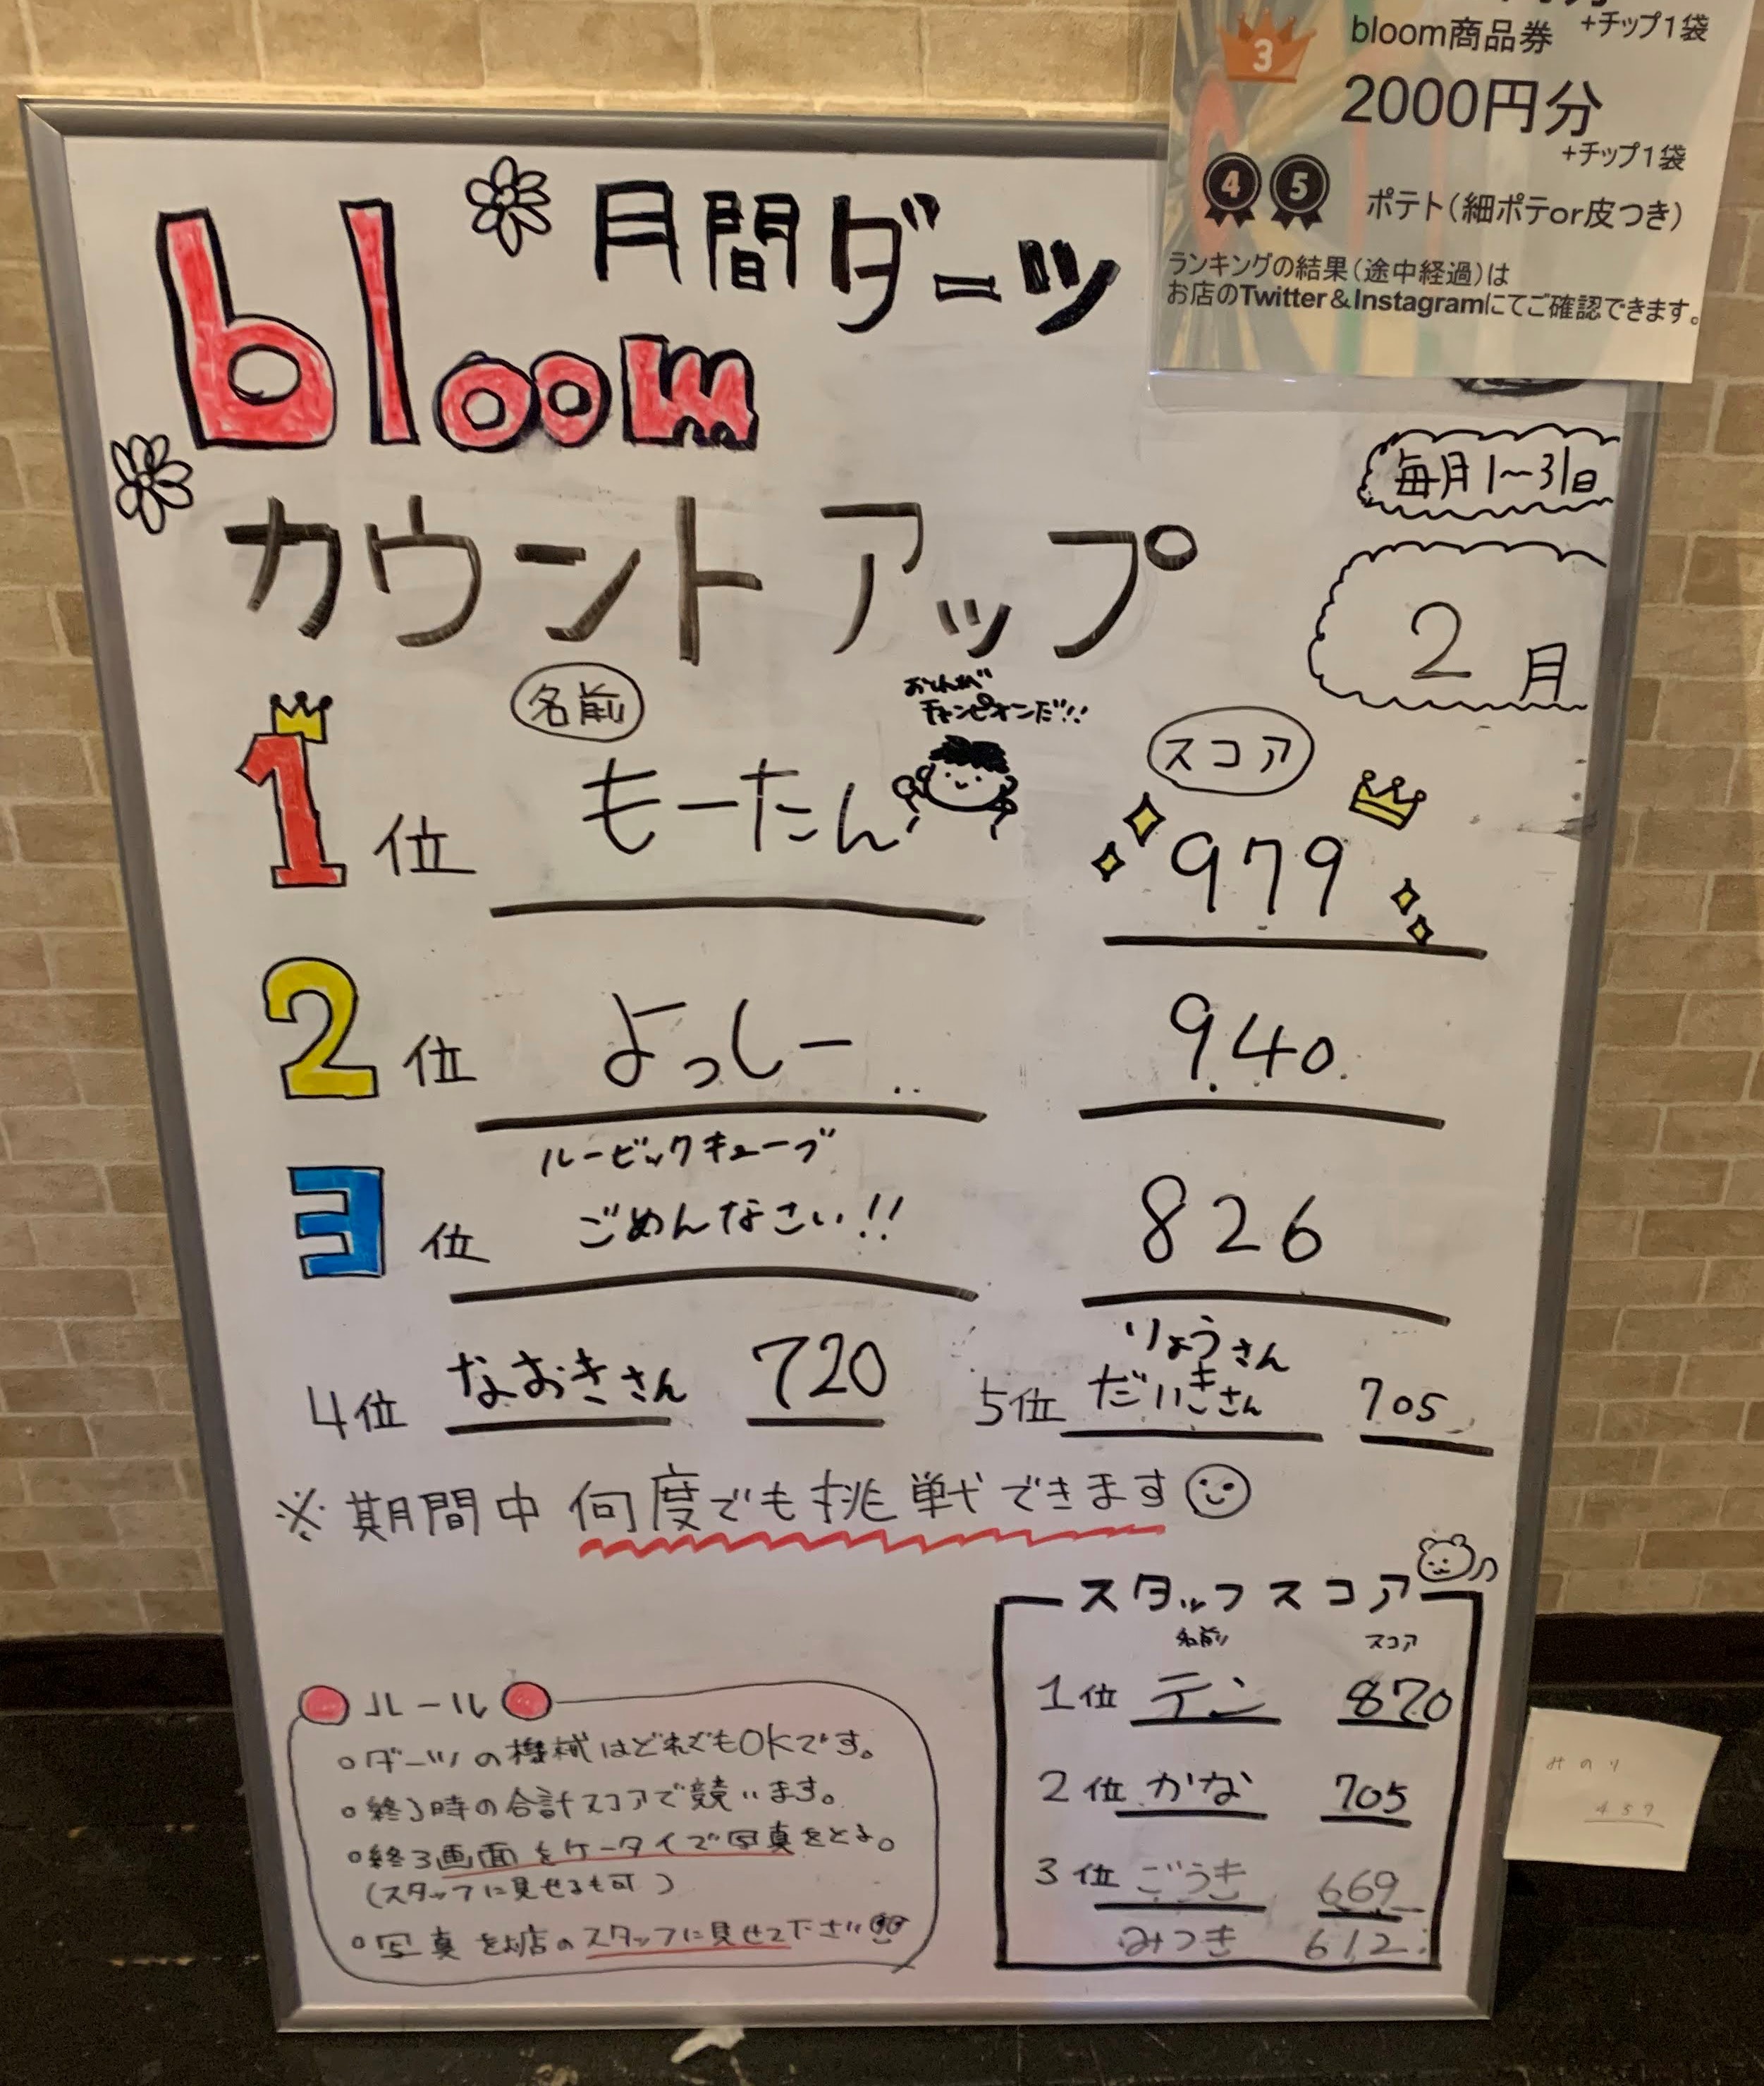 3
bloom商品券 +チップ1袋
2000円分
+チップ1袋
4 5 ポテト(細ポテor皮つき)
ランキングの結果(途中経過)は
お店のTwitter&Instagramにてご確認できます。
月間ダーツ
bloom
毎月1~31日
カウントアップ
2月
名前
チャンピオンだ!!
スコア
1位 もーたん 979
2位 よっしー 940
ルービックキューブ
3位 ごめんなさい!! 826
4位 なおきさん 720
りょうさん
5位 だいきさん 705
※期間中 何度でも挑戦できます
スタッフスコア
名前 スコア
1位 テン 870
2位 かな 705
3位 ごうき 669
みつき 612
ルール
○ダーツの機械はどれでもOKです。
○終了時の合計スコアで競います。
○終了画面をケータイで写真をとる。
(スタッフに見せるも可)
○写真をお店のスタッフに見せて下さい
みのり
457